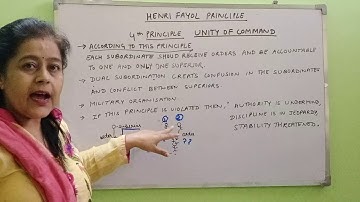 HENRI FAYOL PRINCIPLE
4th PRINCIPLE UNITY OF COMMAND
→ ACCORDING TO THIS PRINCIPLE
EACH SUBORDINATE SHOULD RECEIVE ORDERS AND BE ACCOUNTABLE
TO ONE AND ONLY ONE SUPERIOR.
→ DUAL SUBORDINATION CREATS CONFUSION IN THE SUBORDINATES
AND CONFLICT BETWEEN SUPERIORS
→ MILITARY ORGANISATION
→ IF THIS PRINCIPLE IS VIOLATED THEN, " AUTHORITY IS
DISCIPLINE IS IN JEOPARDY,
STABILITY THREATENED.
??